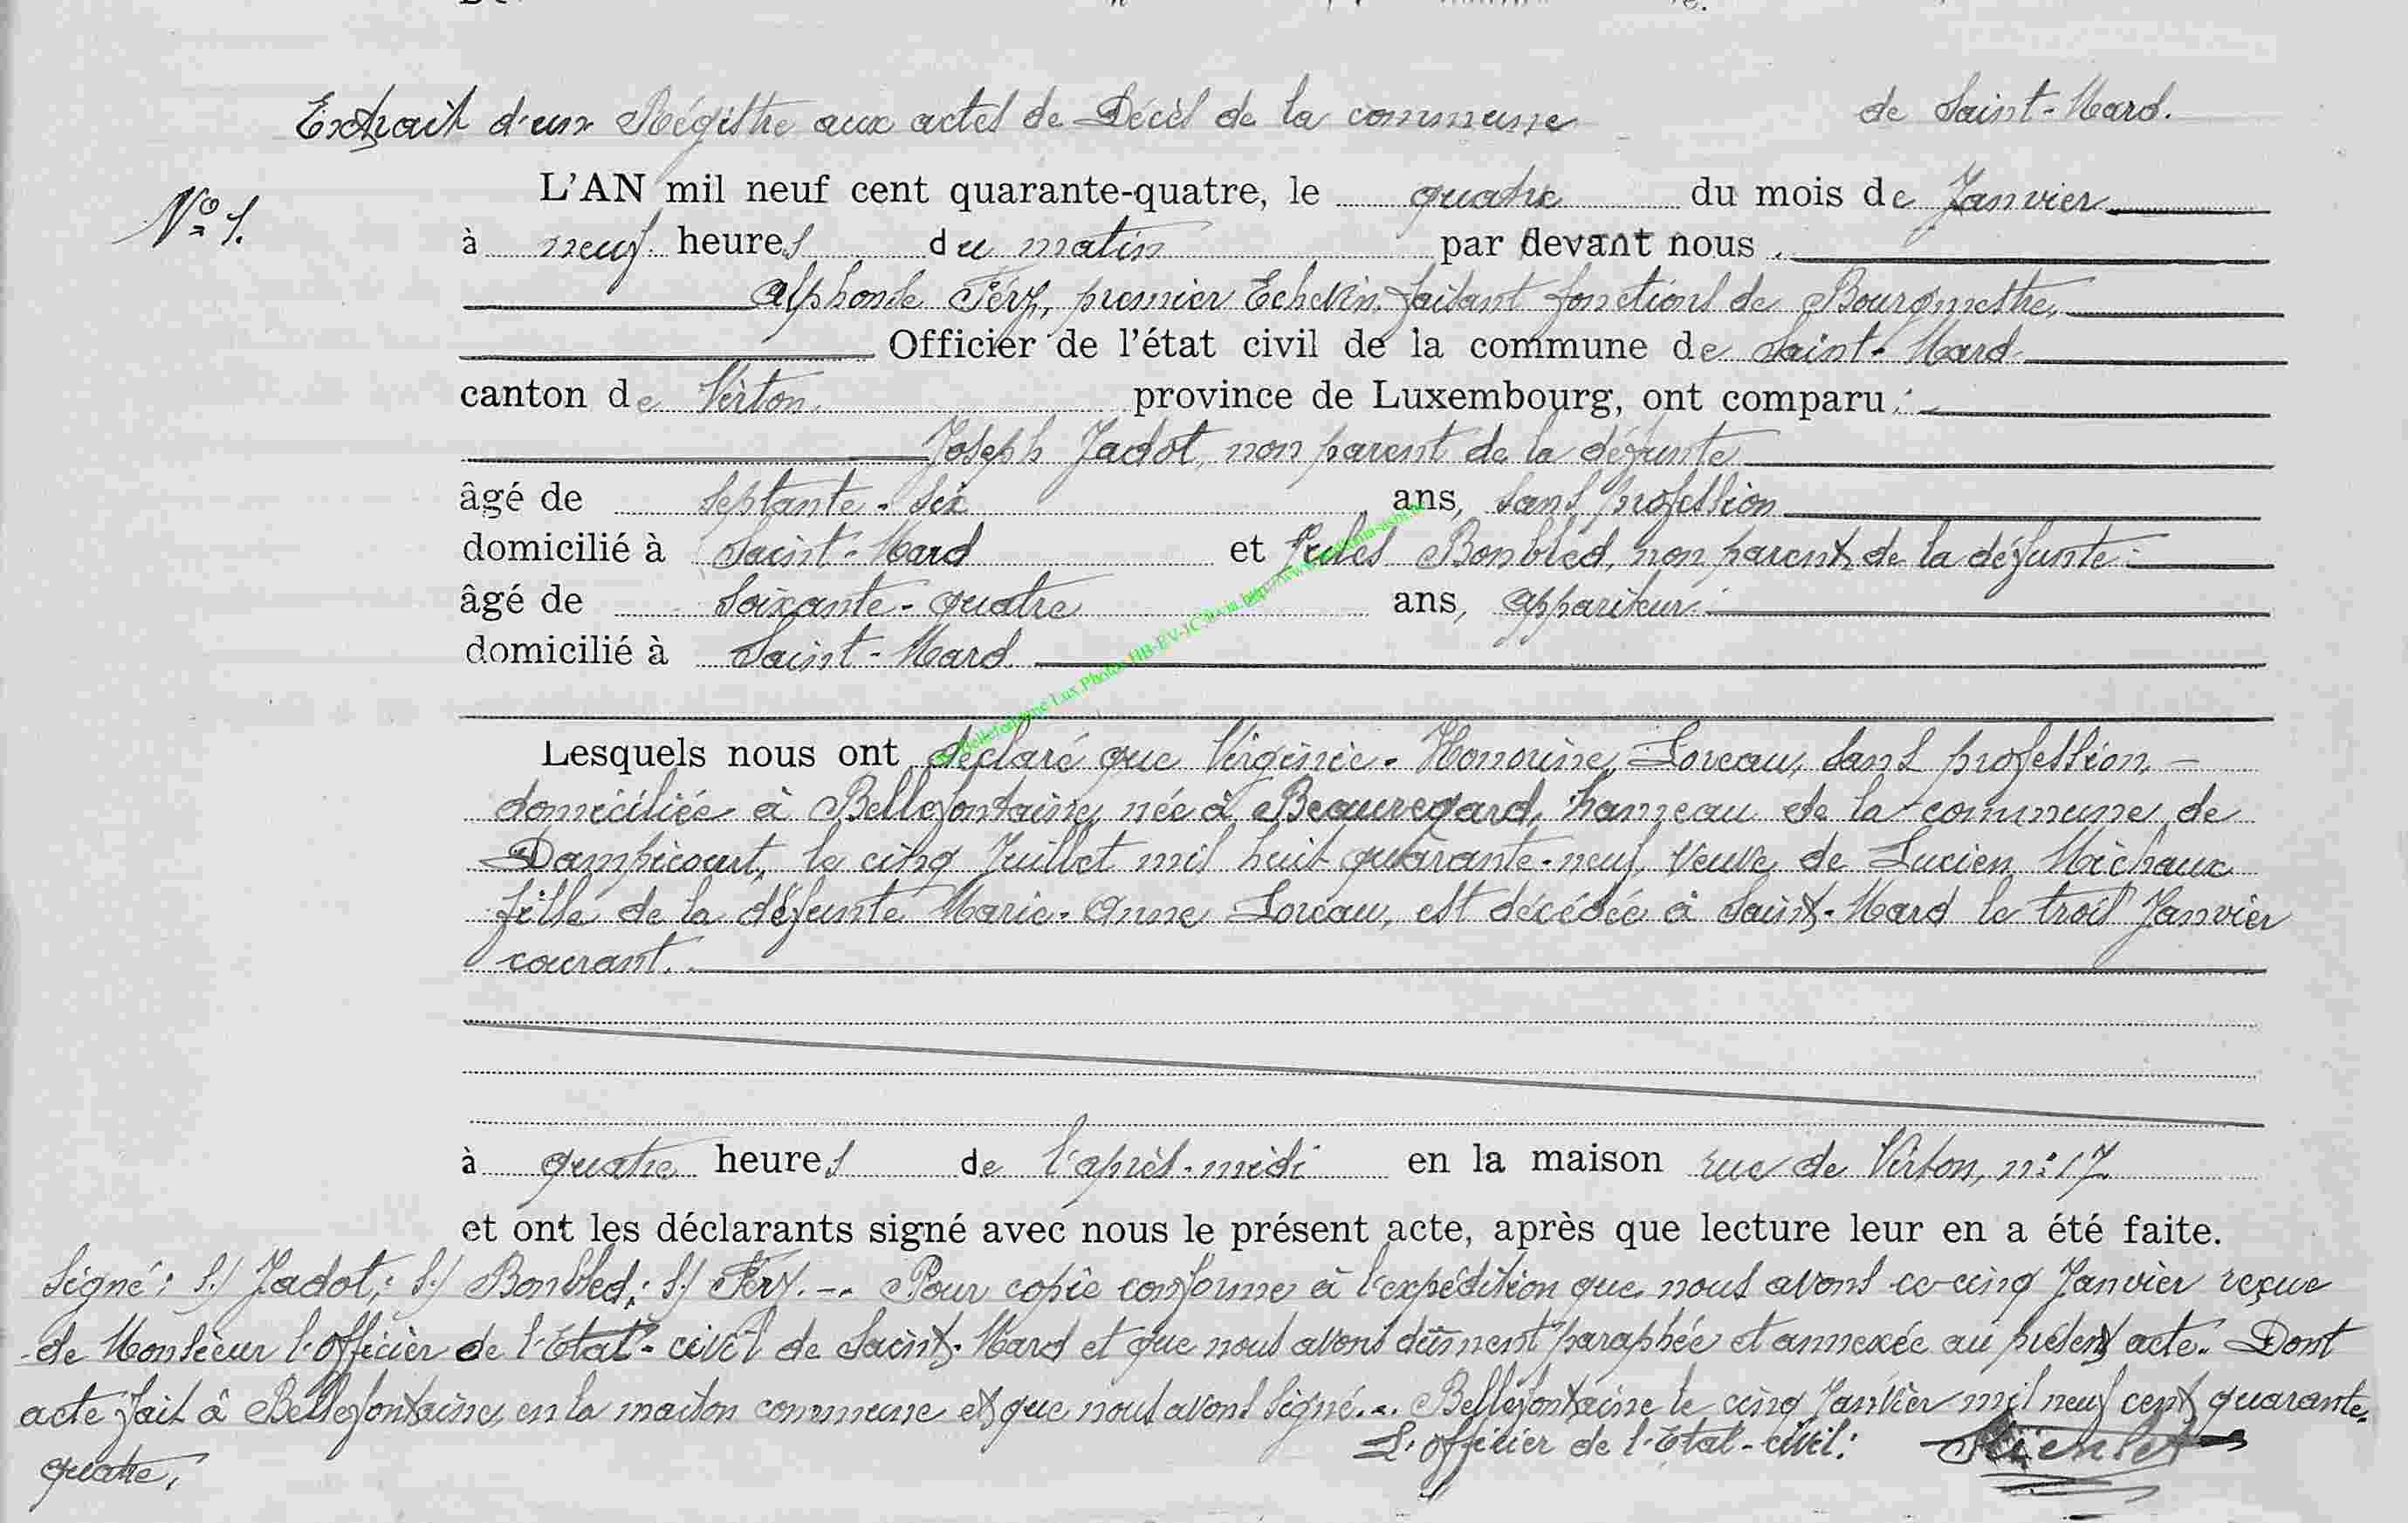 Extrait d'un Régistre aux actes de Décès de la commune de Saint-Mard.
N° 1.
L'AN mil neuf cent quarante-quatre, le quatre du mois de Janvier
à neuf heures du matin par devant nous
Alphonse Féry, premier Echevin, faisant fonctions de Bourgmestre,
Officier de l'état civil de la commune de Saint-Mard
canton de Virton province de Luxembourg, ont comparu :
Joseph Jadot, non parent de la défunte
âgé de septante-six ans, sans profession
domicilié à Saint-Mard et Jules Bonbled, non parent de la défunte
âgé de soixante-quatre ans, appariteur
domicilié à Saint-Mard
Lesquels nous ont déclaré que Virginie-Honorine Loreau, sans profession
domiciliée à Bellefontaine, née à Beauregard, hameau de la commune de
Dampicourt, le cinq Juillet mil huit quarante-neuf, veuve de Lucien Michaux
fille de la défunte Marie-Anne Loreau, est décédée à Saint-Mard le trois Janvier
courant.
à quatre heures de l'après-midi en la maison rue de Virton, n° 17
et ont les déclarants signé avec nous le présent acte, après que lecture leur en a été faite.
Signé : s./ Jadot ; s./ Bonbled ; s./ Féry. -- Pour copie conforme à l'expédition que nous avons ce cinq Janvier reçue
de Monsieur l'officier de l'Etat-civil de Saint-Mard et que nous avons dûment paraphée et annexée au présent acte. Dont
acte fait à Bellefontaine, en la maison commune et que nous avons signé. -. Bellefontaine le cinq Janvier mil neuf cent quarante-
quatre.
L'officier de l'Etat-civil :